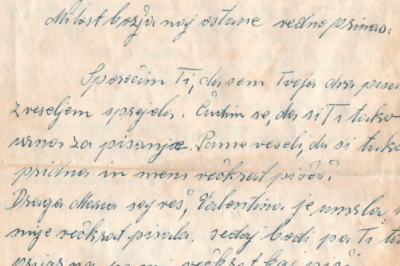 Milost božja naj ostane vedno pri nas.
Sporočim Ti, da sem Tvoja dva pisma
z veseljem sprejela. Čudim se, da si Ti tako
urna za pisanje. Pa me veseli, da si tako
pridna in meni večkrat pišeš.
Draga Mara saj veš, Valentina je umrla,
mije večkrat pisala, sedaj bodi pa Ti
večkrat kaj piši